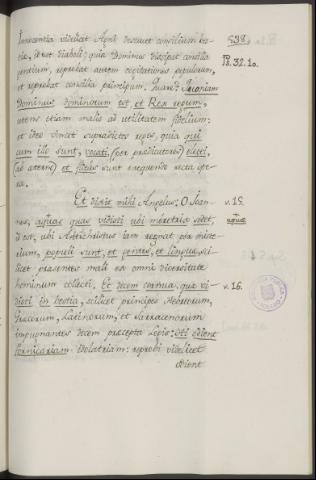 Innocentia videlicet Agni destruet consilium ho-
stis, id est diaboli: quia Dominus dissipat consilia
gentium, reprobat autem cogitationes populorum,
et reprobat consilia principum. Quare? Quoniam
Dominus dominorum est, et Rex regum,
utens etiam malis ad utilitatem fidelium:
et ideo vincet supradictos reges, quia qui
cum illo sunt, vocati (per prædicatores) electi,
(ab æterno) et fideles sunt exequendo recta ope-
ra.
Et dixit mihi Angelus: O Joan-
nes, aquas quas vidisti ubi meretrix sedet,
id est, ubi Antichristus iam regnat per miste-
rium, populi sunt, et gentes, et linguæ, sci-
licet præsentes mali ex omni diversitate
hominum collecti. Et decem cornua, quæ vi-
disti in bestia, scilicet principes Hebreorum,
Græcorum, Latinorum, et Sarracenorum
impugnantes decem præcepta legis: Hi odient
fornicariam. Idolatriam: reprobi videlicet
odient
838.
Ps. 32. 10.
v. 15.
aquæ
v. 16.